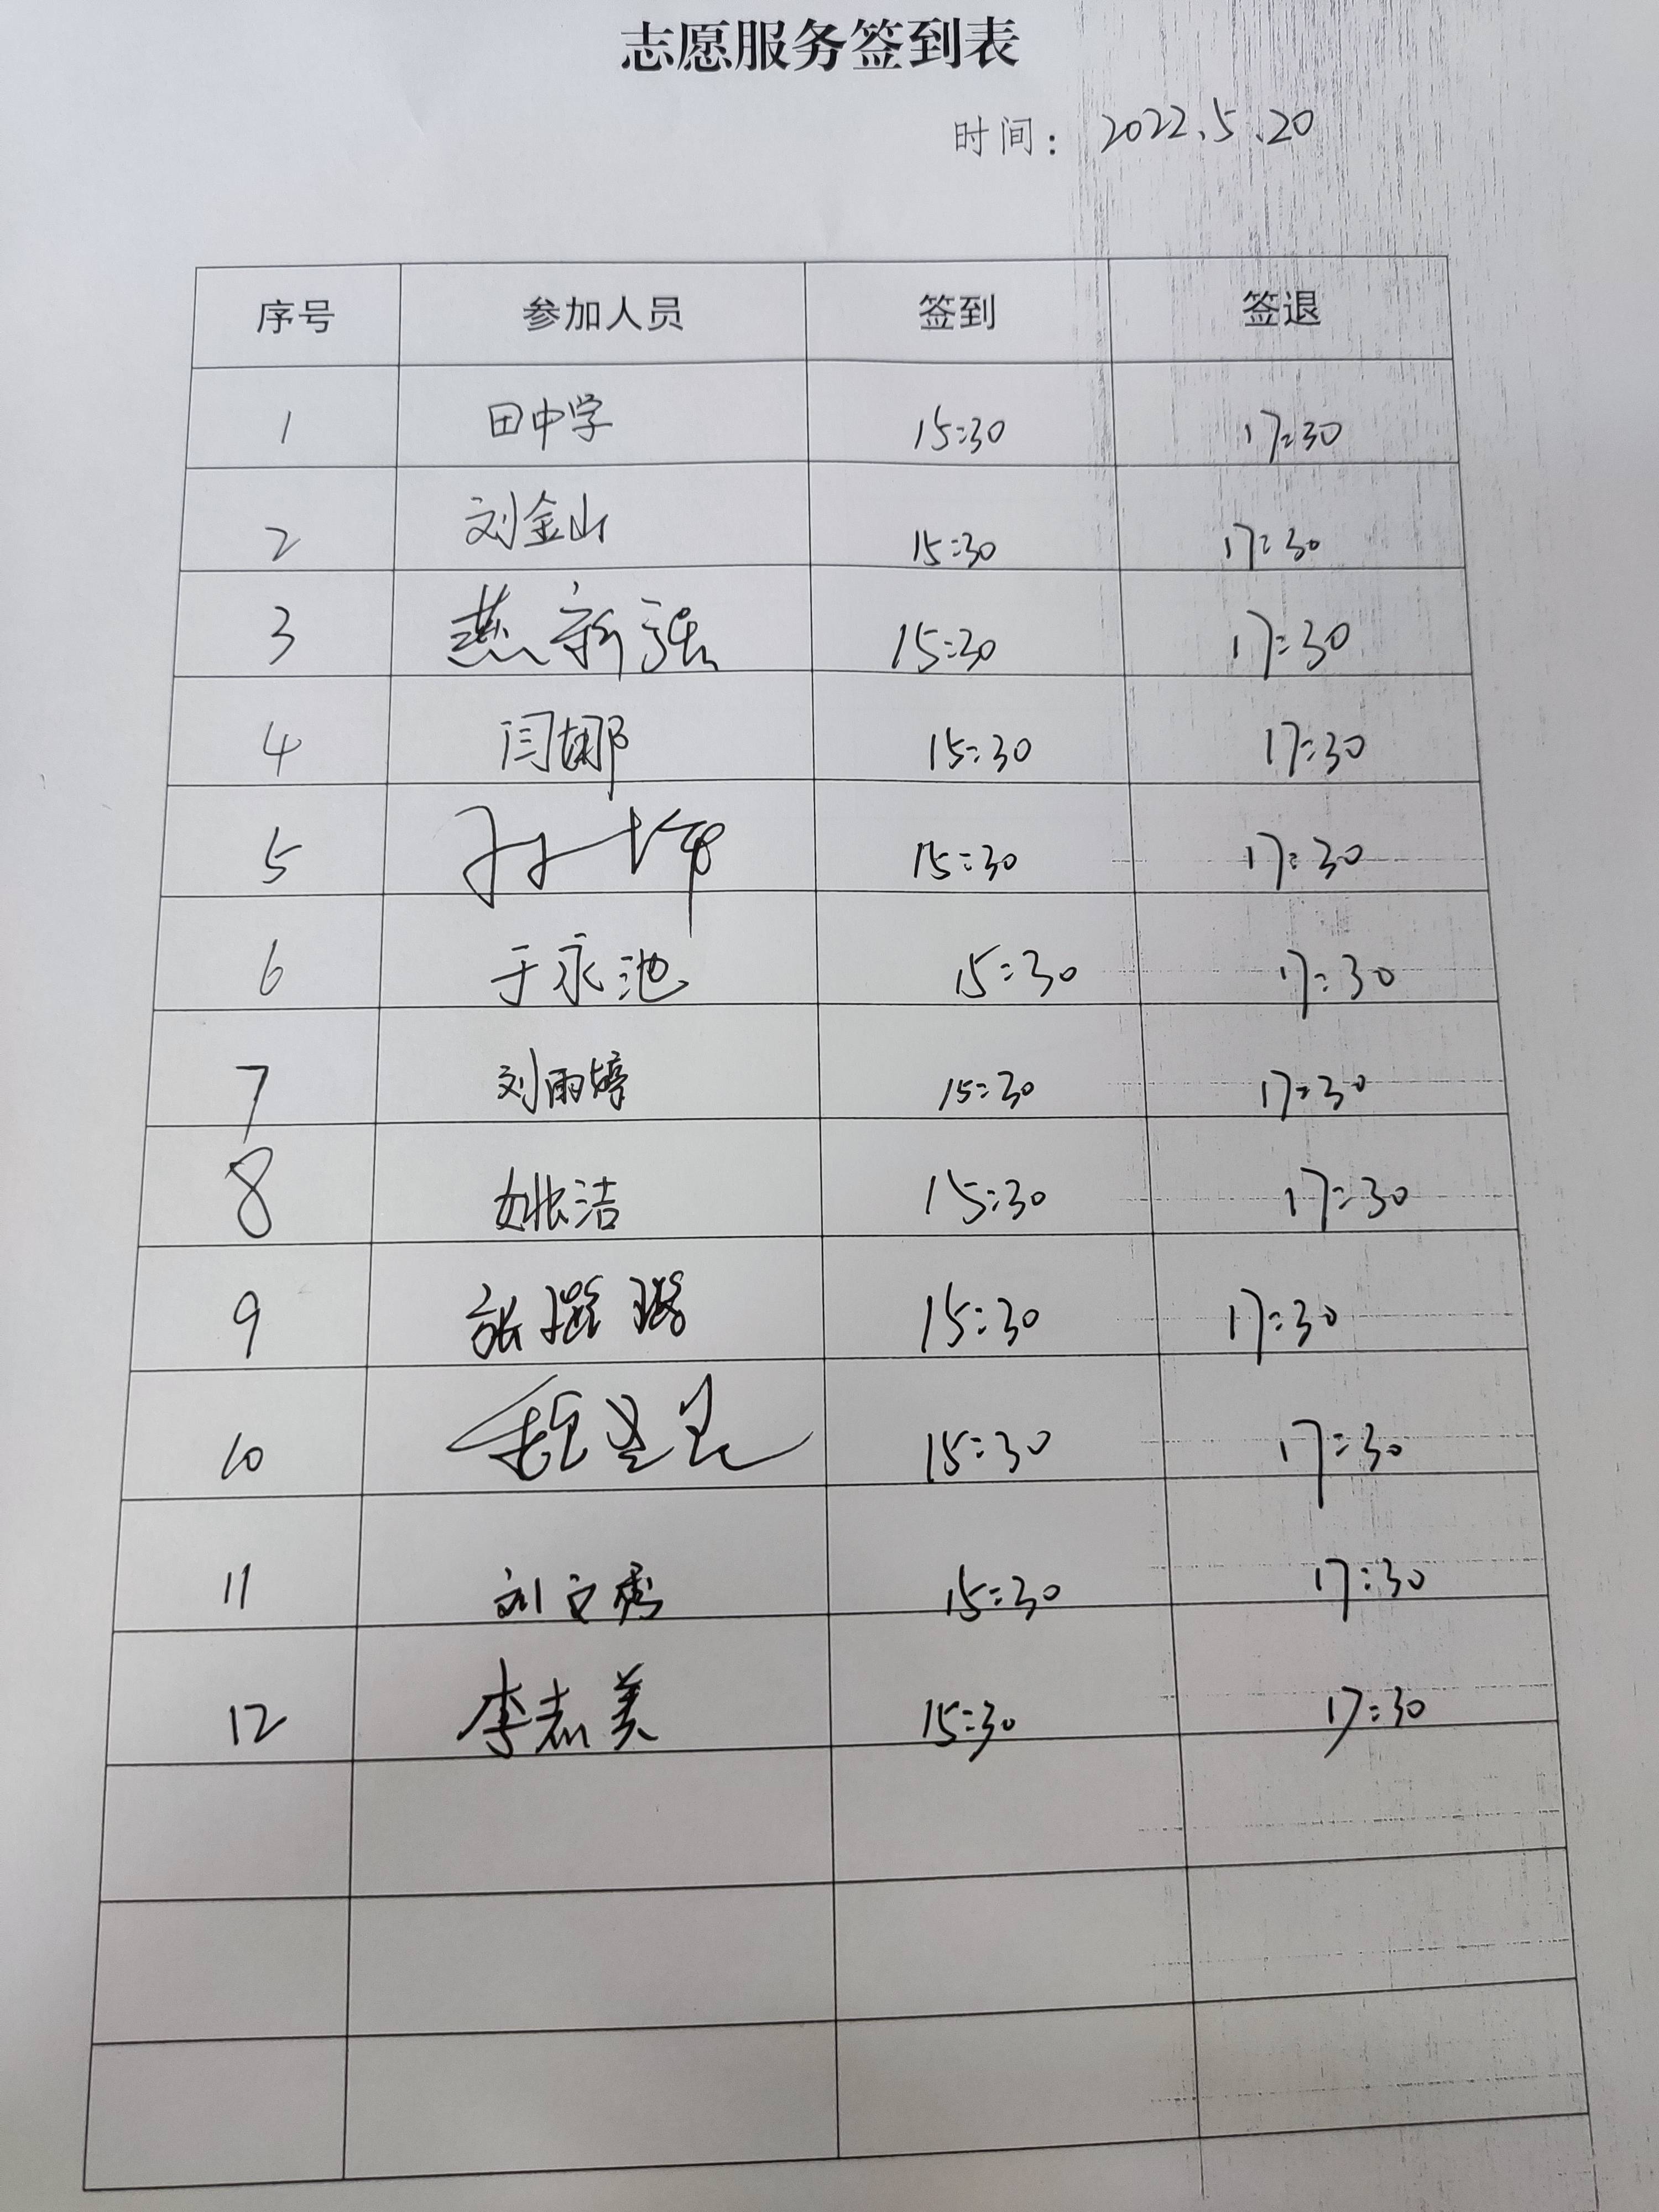 志愿服务签到表
时间： 2022.5.20
序号 参加人员 签到 签退
1 田中学 15:30 17:30
2 刘金山 15:30 17:30
3 燕新强 15:30 17:30
4 闫娜 15:30 17:30
5 孙坤 15:30 17:30
6 于永池 15:30 17:30
7 刘雨婷 15:30 17:30
8 姚洁 15:30 17:30
9 张璐 15:30 17:30
10 15:30 17:30
11 刘文秀 15:30 17:30
12 李志美 15:30 17:30